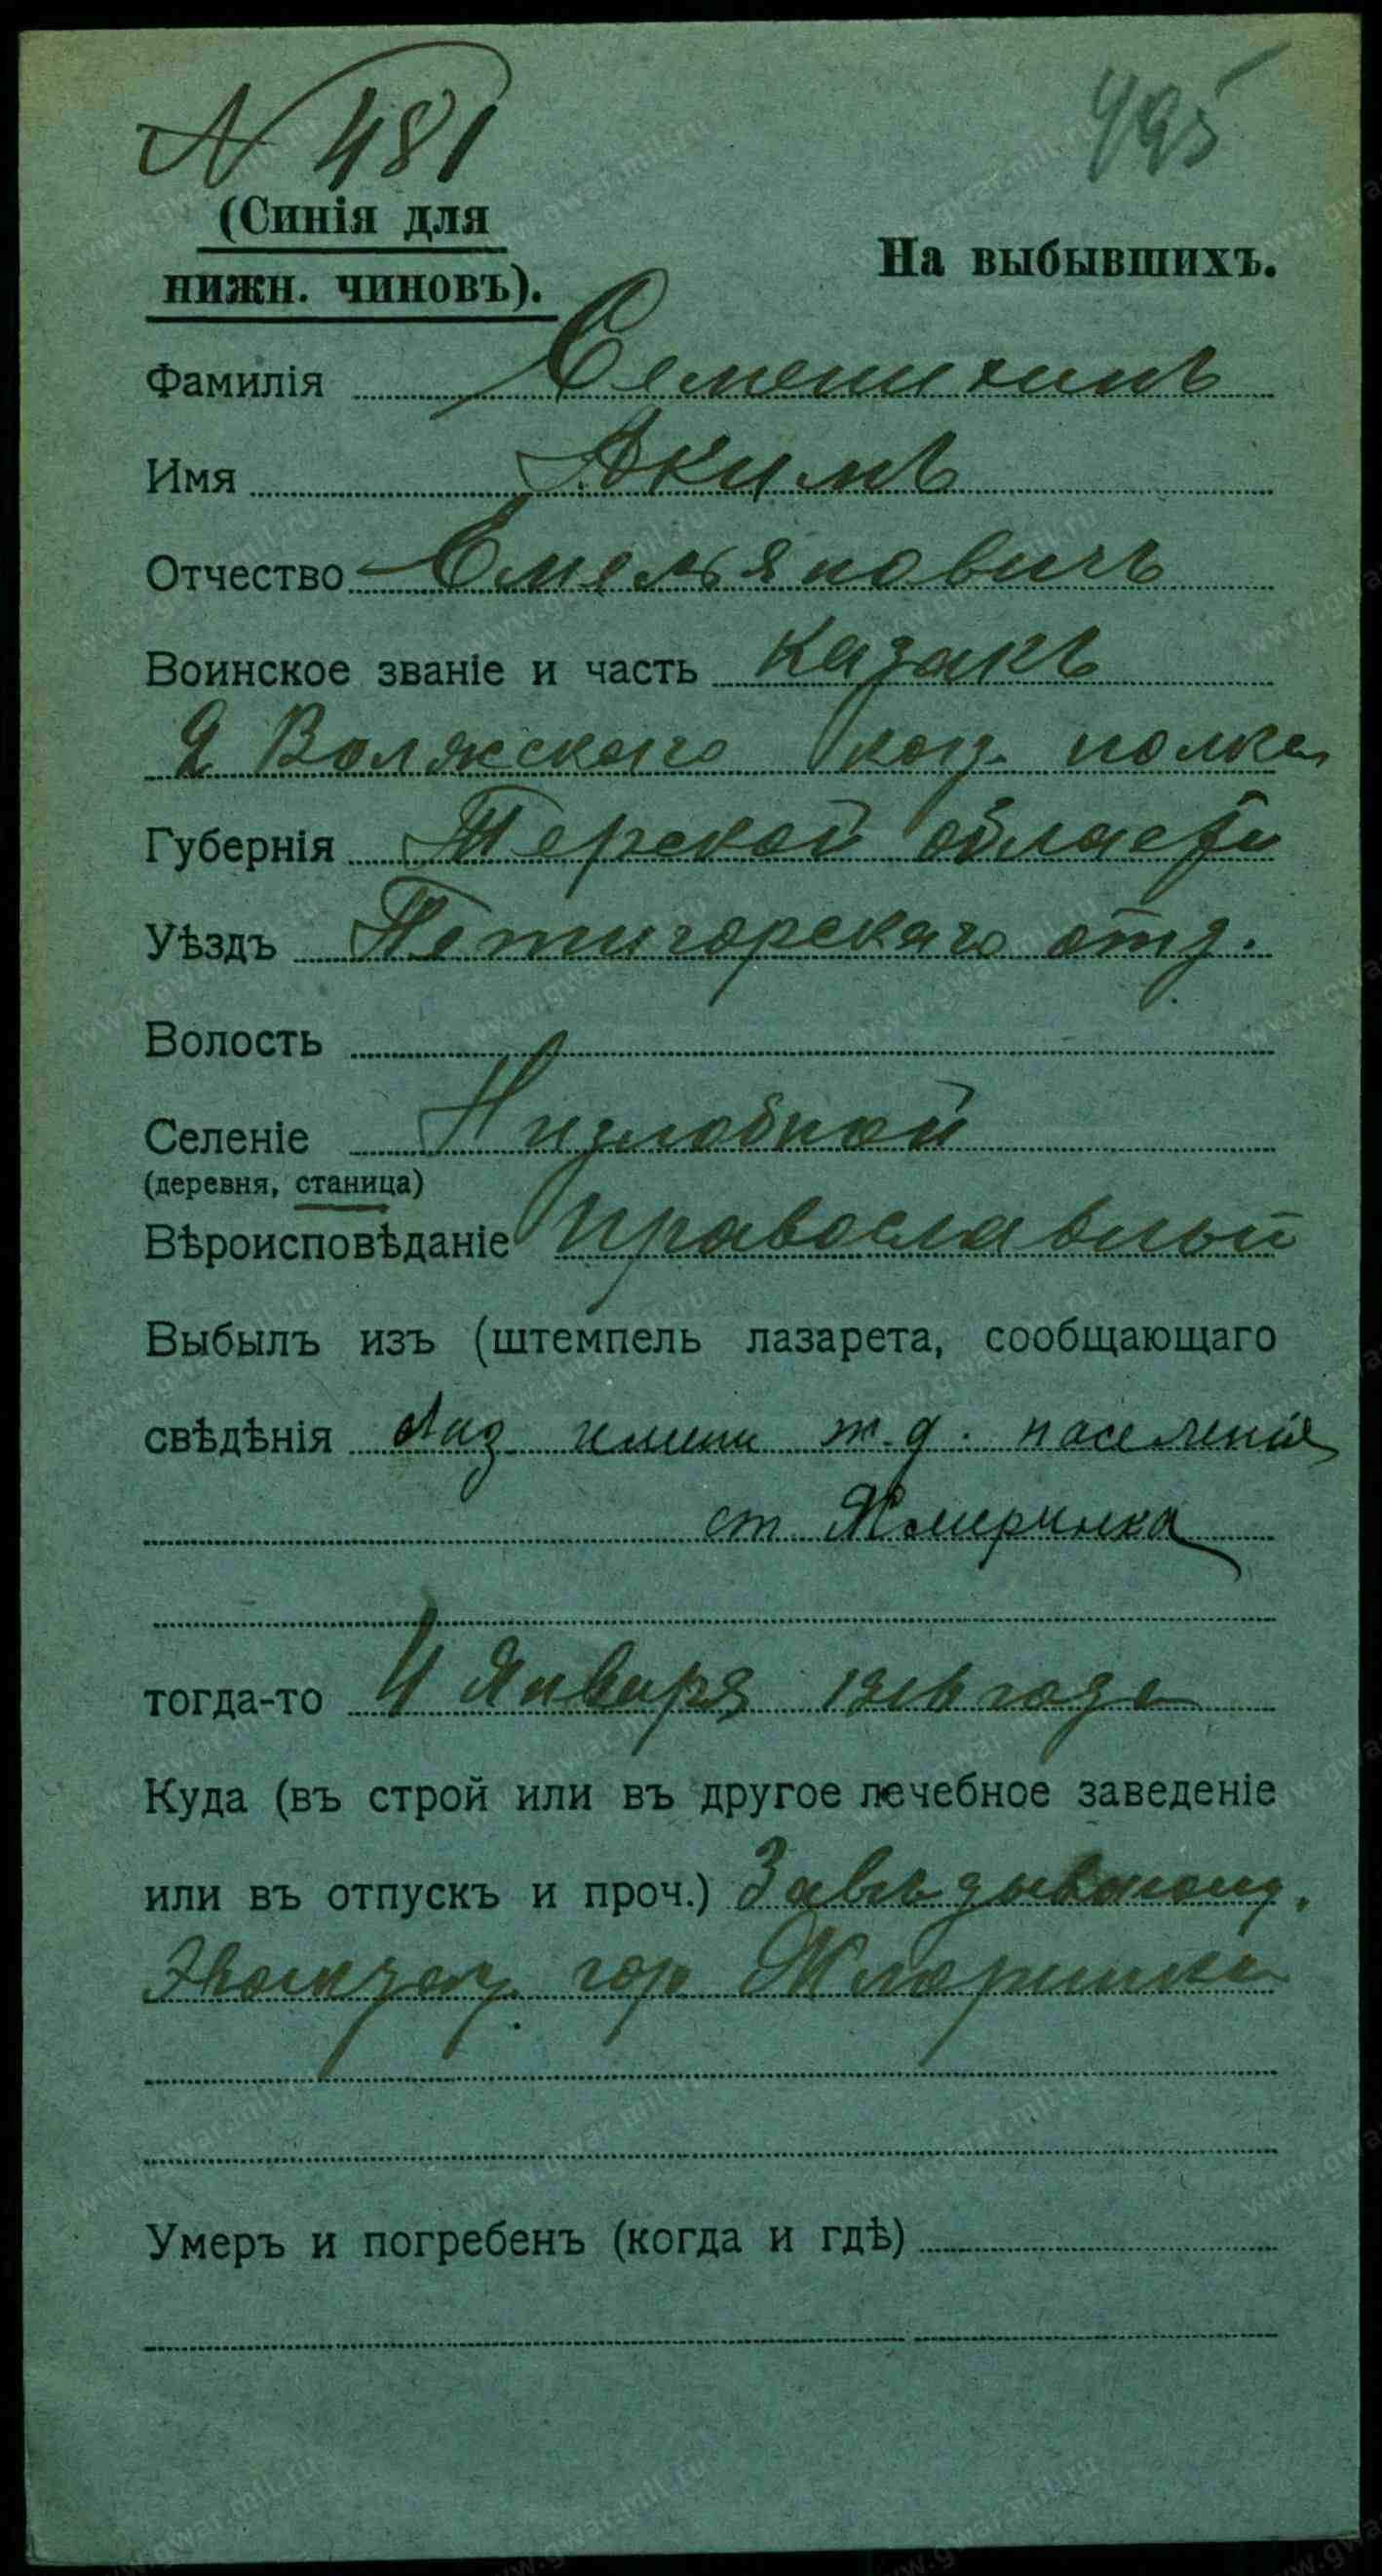 N 481
495
(Синія для
нижн. чиновъ).
На выбывшихъ.
Фамилія Семенихинъ
Имя Акимъ
Отчество Емельяновичъ
Воинское званіе и часть казакъ
2 Волжскаго каз. полка
Губернія Терской области
Уѣздъ Петигорскаго отд.
Волость
Селеніе Низлобной
(деревня, станица)
Вѣроисповѣданіе православный
Выбылъ изъ (штемпель лазарета, сообщающаго
свѣдѣнія Лаз имени ж.д. населенія
ст Жмеринка
тогда-то 4 Января 1916 года
Куда (въ строй или въ другое лечебное заведеніе
или въ отпускъ и проч.)
гор
Умеръ и погребенъ (когда и гдѣ)
www.gwar.mil.ru